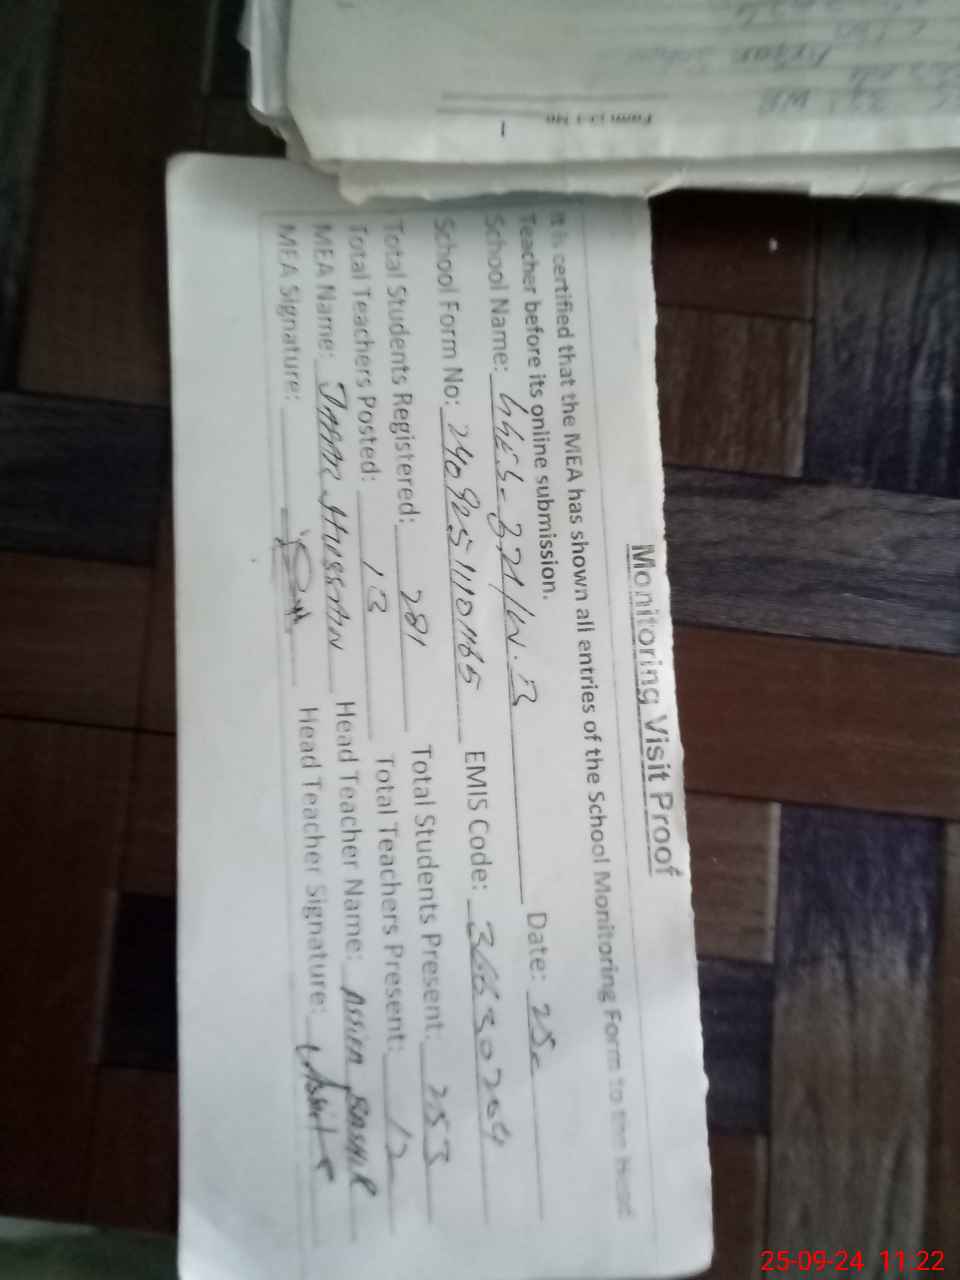 Monitoring Visit Proof
It is certified that the MEA has shown all entries of the School Monitoring Form to the Head
Teacher before its online submission.
School Name: GGES-371/W.B Date: 25-
School Form No: 240925111101165 EMIS Code: 36630204
Total Students Registered: 281 Total Students Present: 253
Total Teachers Posted: 13 Total Teachers Present: 12
MEA Name: JAFAR HUSSAIN Head Teacher Name: BASHIR
MEA Signature: Head Teacher Signature:
25-09-24 11:22